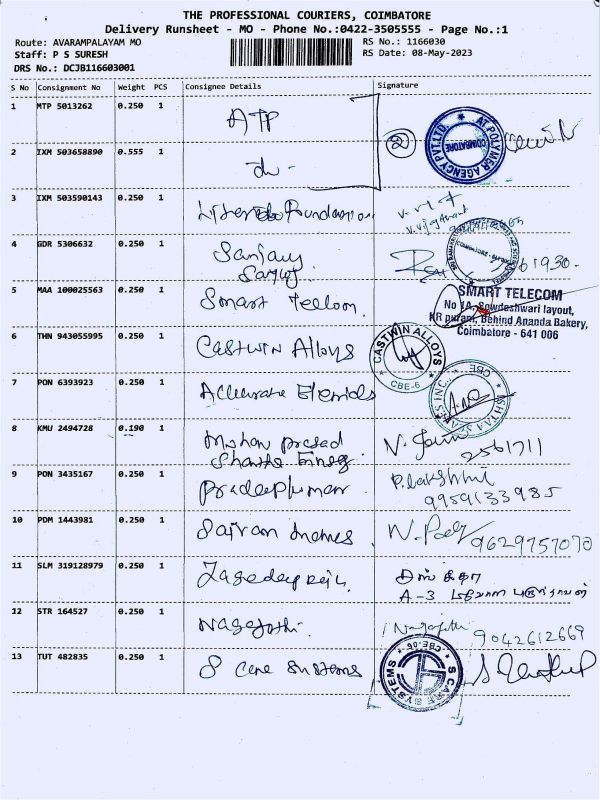 THE PROFESSIONAL COURIERS, COIMBATORE
Delivery Runsheet - MO - Phone No.:0422-3505555 - Page No.:1
Route: AVARAMPALAYAM MO
RS No.: 1166030
Staff: P S SURESH
RS Date: 08-May-2023
DRS No.: DCJB116603001
S No Consignment No Weight PCS Consignee Details Signature
1 MTP 5013262 0.250 1 ATP
AT.POLYMER AGENCY PVT.LTD COIMBATORE
2 IXM 503658890 0.555 1 do - 2
3 IXM 503590143 0.250 1 Foundation
4 GDR 5306632 0.250 1 Sanjay
Sanjay
5 MAA 100025563 0.250 1 Smart Telecom
SMART TELECOM
No 1A, Sowdeshwari layout,
KR puram, Behind Ananda Bakery,
Coimbatore - 641 006
6 THN 943055995 0.250 1 Castwin Alloys
CASTWIN ALLOYS CBE-6
7 PON 6393923 0.250 1 Accurate
CBE
8 KMU 2494728 0.190 1 Mohan Prasad
2561711
9 PON 3435167 0.250 1 Pradeepkumar P. Lakshmi
9959133985
10 PDM 1443981 0.250 1 Sairam
9629757070
11 SLM 319128979 0.250 1
A-3
12 STR 164527 0.250 1 Nagajothi. Nagajothi
9042612669
13 TUT 482835 0.250 1 S Care Systems
S CARE SYSTEMS CBE-06